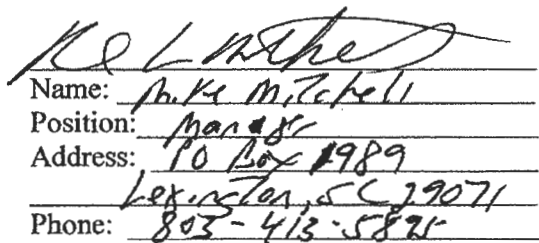 Name: Mike Mitchell
Position: Manager
Address: PO Box 1989
Lexington, SC 29071
Phone: 803-413-5895